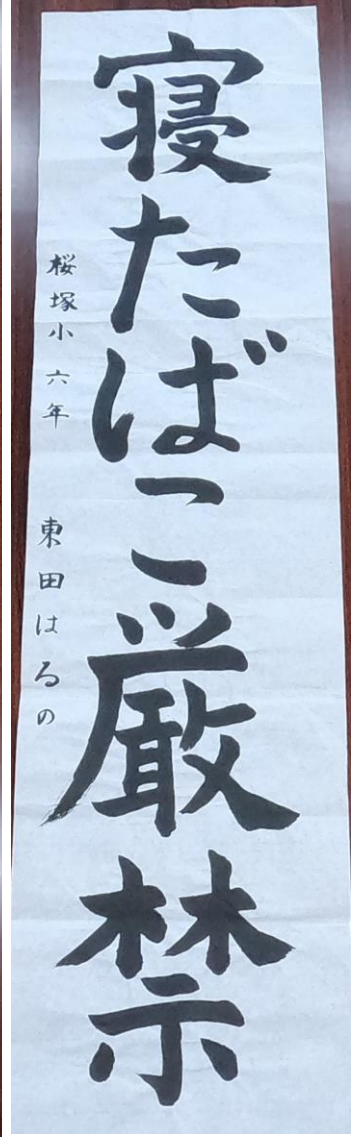 寝たばこ厳禁
桜塚小六年 東田はるの